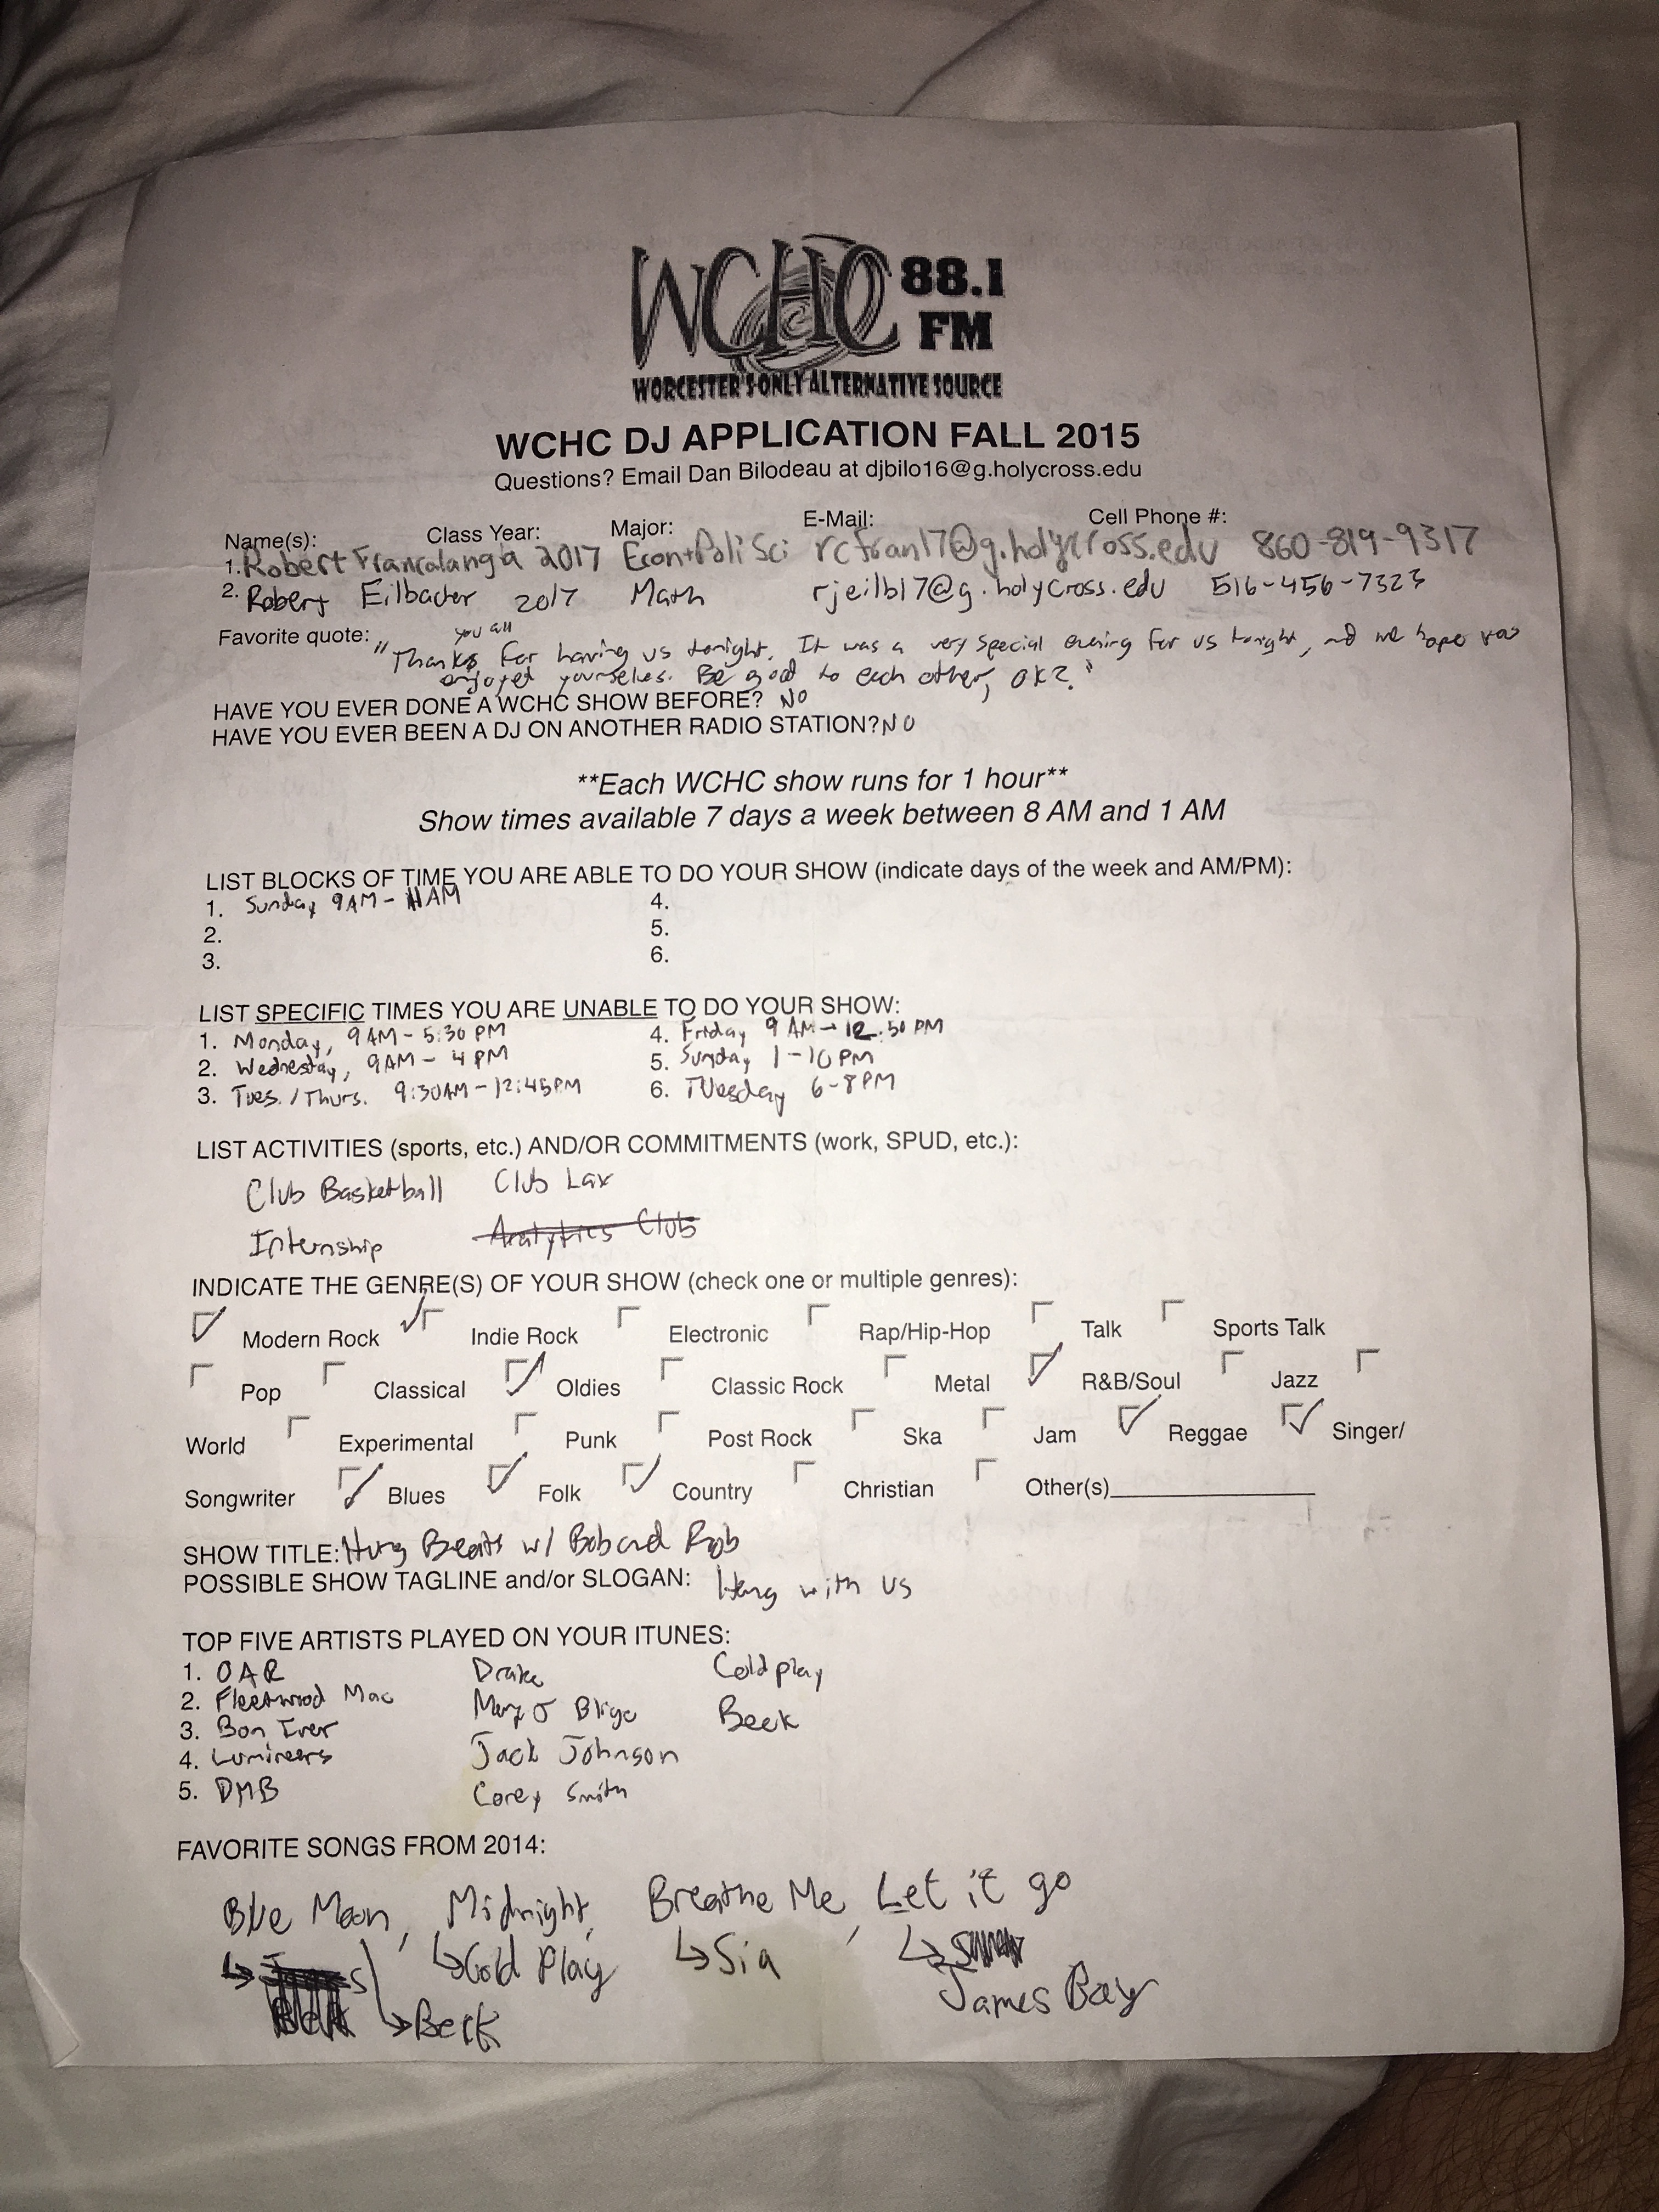 WCHC 88.1
FM
WORCESTER'S ONLY ALTERNATIVE SOURCE
WCHC DJ APPLICATION FALL 2015
Questions? Email Dan Bilodeau at djbilo16@g.holycross.edu
Name(s): Class Year: Major: E-Mail: Cell Phone #:
1. Robert Francalanga 2017 Econ+Poli Sci rcfran17@g.holycross.edu 860-819-9317
2. Robert Eilbacher 2017 Math rjeilb17@g.holycross.edu 516-456-7323
you all
Favorite quote: "Thanks for having us tonight. It was a very special evening for us tonight, and we hope you
enjoyed yourselves. Be good to each other, ok?"
HAVE YOU EVER DONE A WCHC SHOW BEFORE? NO
HAVE YOU EVER BEEN A DJ ON ANOTHER RADIO STATION? NO
**Each WCHC show runs for 1 hour**
Show times available 7 days a week between 8 AM and 1 AM
LIST BLOCKS OF TIME YOU ARE ABLE TO DO YOUR SHOW (indicate days of the week and AM/PM):
1. Sunday 9AM - 11AM 4.
2. 5.
3. 6.
LIST SPECIFIC TIMES YOU ARE UNABLE TO DO YOUR SHOW:
1. Monday, 9AM - 5:30 PM 4. Friday 9 AM - 12:50 PM
2. Wednesday, 9AM - 4 PM 5. Sunday 1-10 PM
3. Tues./Thurs. 9:30AM - 12:45PM 6. Tuesday 6-8PM
LIST ACTIVITIES (sports, etc.) AND/OR COMMITMENTS (work, SPUD, etc.):
Club Basketball Club Lax
Internship Analytics Club
INDICATE THE GENRE(S) OF YOUR SHOW (check one or multiple genres):
Modern Rock Indie Rock Electronic Rap/Hip-Hop Talk Sports Talk
Pop Classical Oldies Classic Rock Metal R&B/Soul Jazz
World Experimental Punk Post Rock Ska Jam Reggae Singer/
Songwriter Blues Folk Country Christian Other(s)
SHOW TITLE: Hung Beats w/ Bob and Rob
POSSIBLE SHOW TAGLINE and/or SLOGAN: Hang with us
TOP FIVE ARTISTS PLAYED ON YOUR ITUNES:
1. OAR Drake Coldplay
2. Fleetwood Mac Mary J Blige Beck
3. Bon Iver Jack Johnson
4. Lumineers Corey Smith
5. DMB
FAVORITE SONGS FROM 2014:
Blue Moon, Midnight, Breathe Me, Let it go
Cold Play Sia
James Bay
Beck